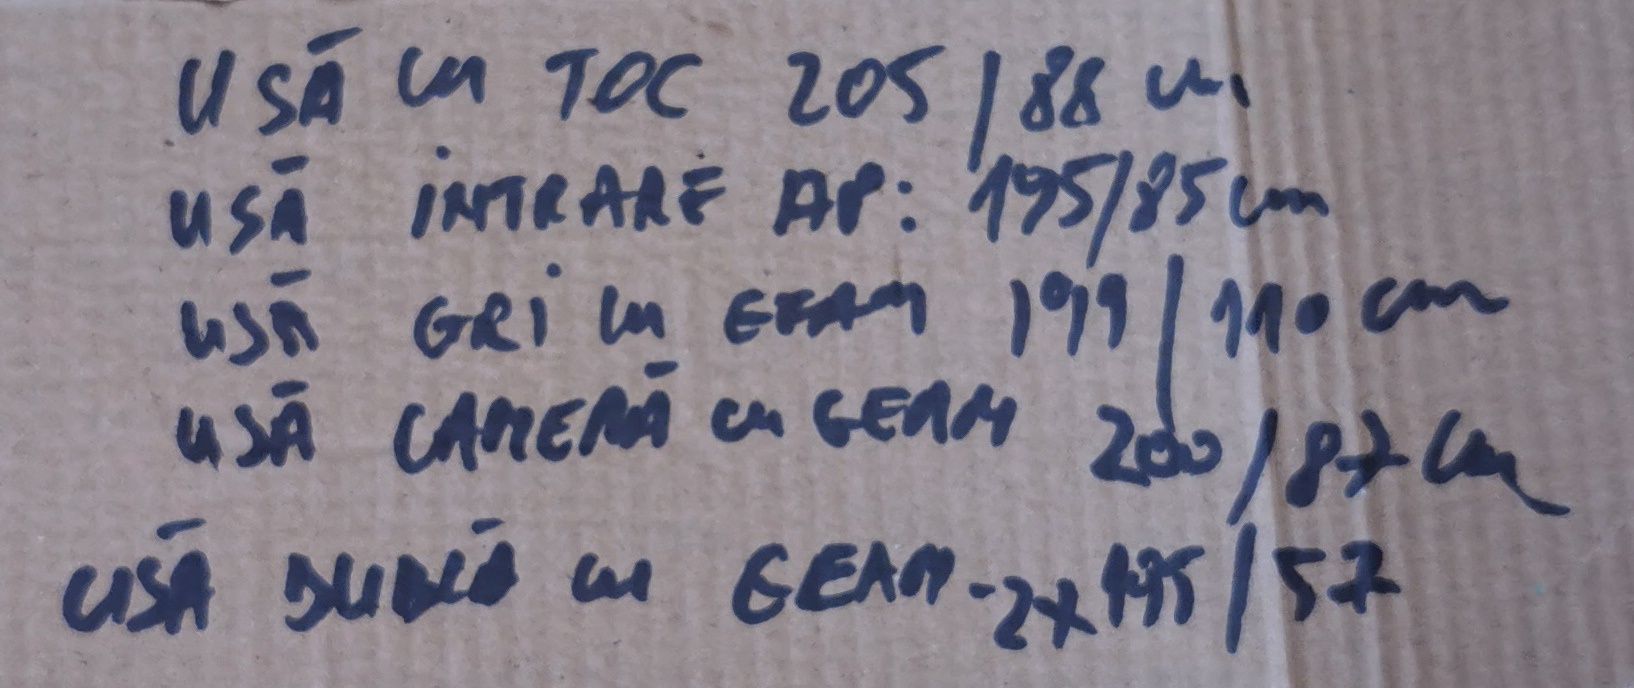 USĂ cu TOC 205/88 cm
USĂ INTRARE AP: 195/85 cm
USĂ GRI cu GEAM 199/110 cm
USĂ CAMERĂ cu GEAM 200/87 cm
USĂ DUBLĂ cu GEAM - 2x195/57